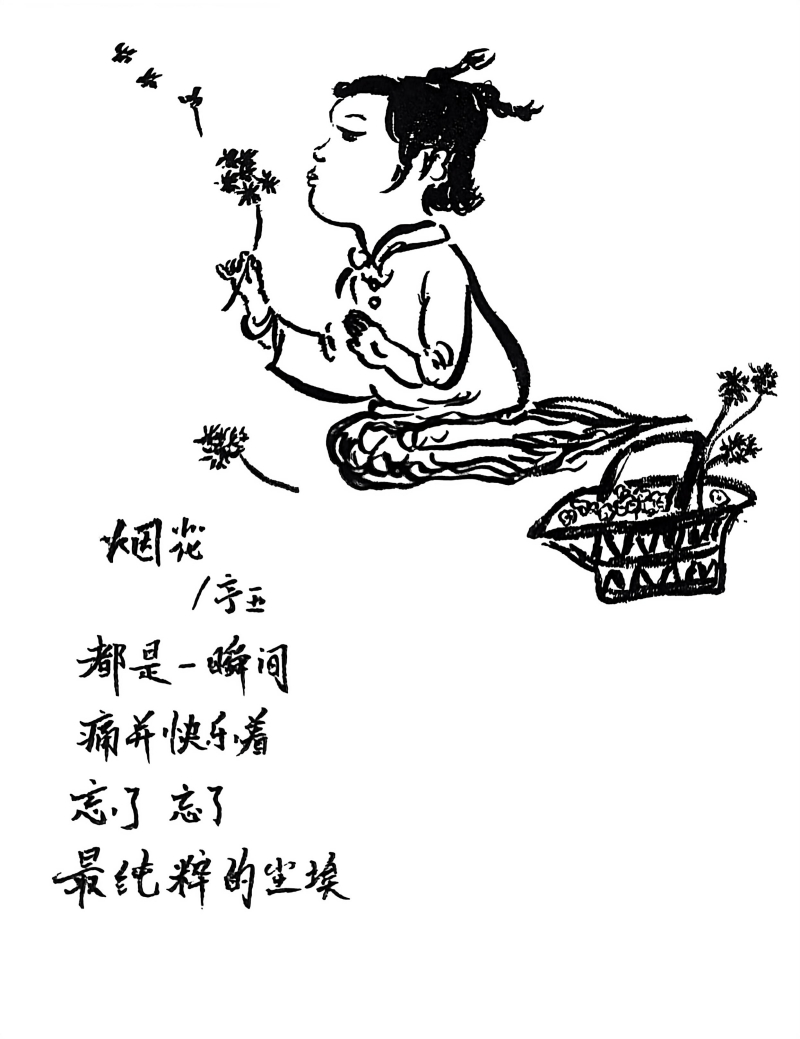 烟花
/亭王
都是一瞬间
痛并快乐着
忘了 忘了
最纯粹的尘埃